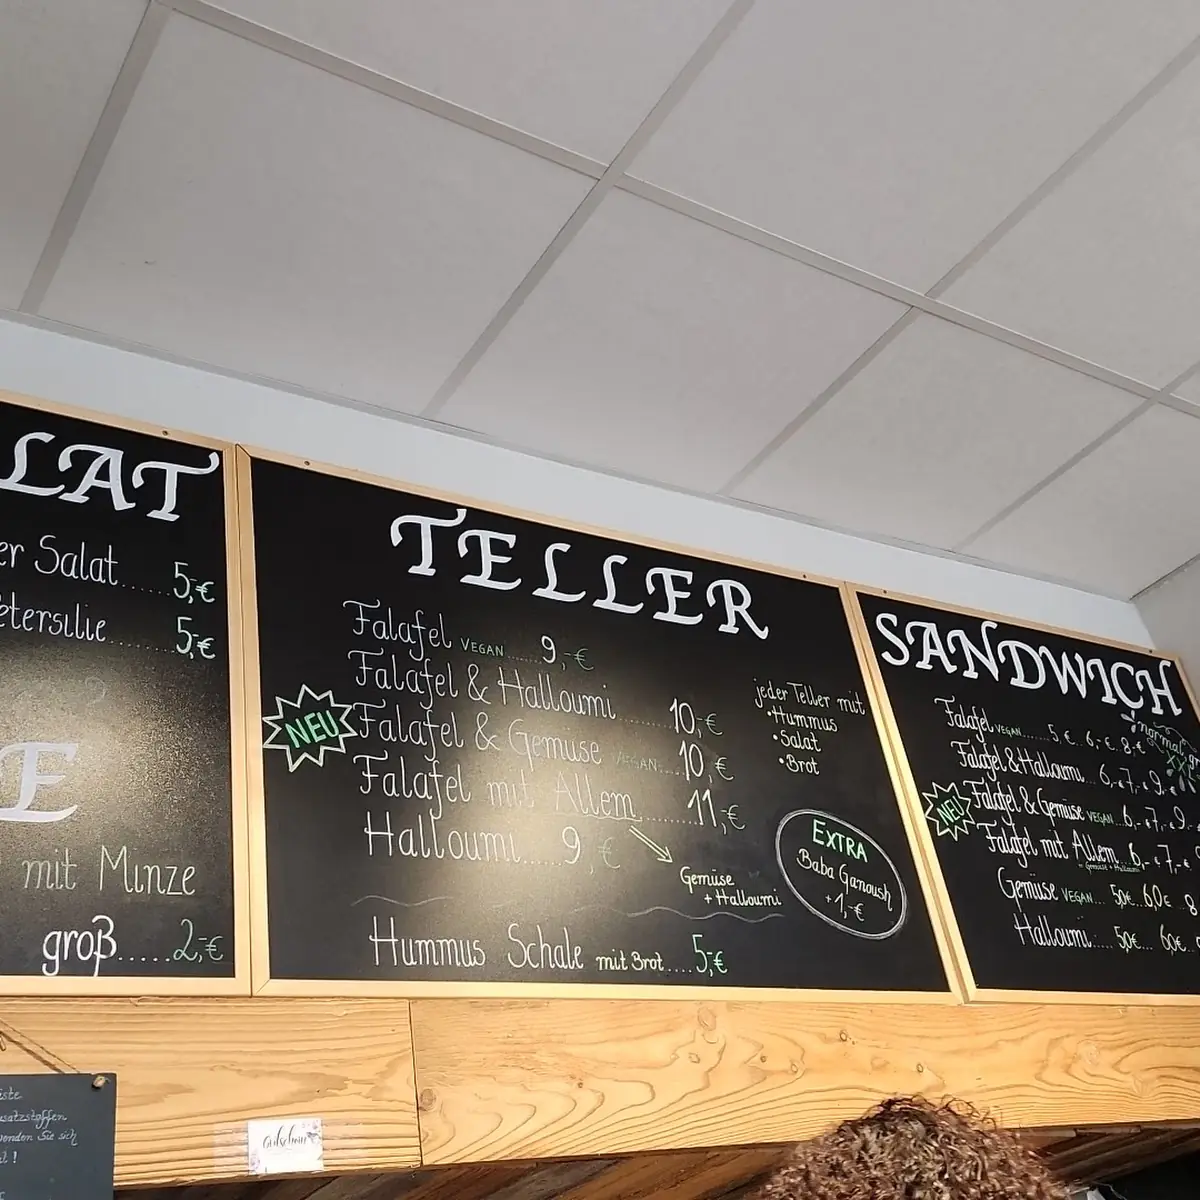 LAT
er Salat......5,-€
etersilie..........5,-€
E
mit Minze
groß.....2,-€
TELLER
Falafel VEGAN......9,-€
Falafel & Halloumi..........10,-€
NEU
Falafel & Gemüse VEGAN...10,-€
Falafel mit Allem..........11,-€
Gemüse
+ Halloumi
Halloumi.....9,-€
Hummus Schale mit Brot....5,-€
jeder Teller mit
•Hummus
•Salat
•Brot
EXTRA
Baba Ganoush
+1,-€
SANDWICH
normal
Falafel VEGAN 5,-€...6,-€...8,-€
Falafel & Halloumi...6,-€...7,-€...9,-€
NEU
Falafel & Gemüse VEGAN...6,-€...7,-€...9
Falafel mit Allem 6,-€...7,-€
Gemüse + Halloumi
Gemüse VEGAN.... 5,0€...6,0€...8
Halloumi.....5,0€....6,0€
usatzstoffen
enden Sie sich
!
Gutschein